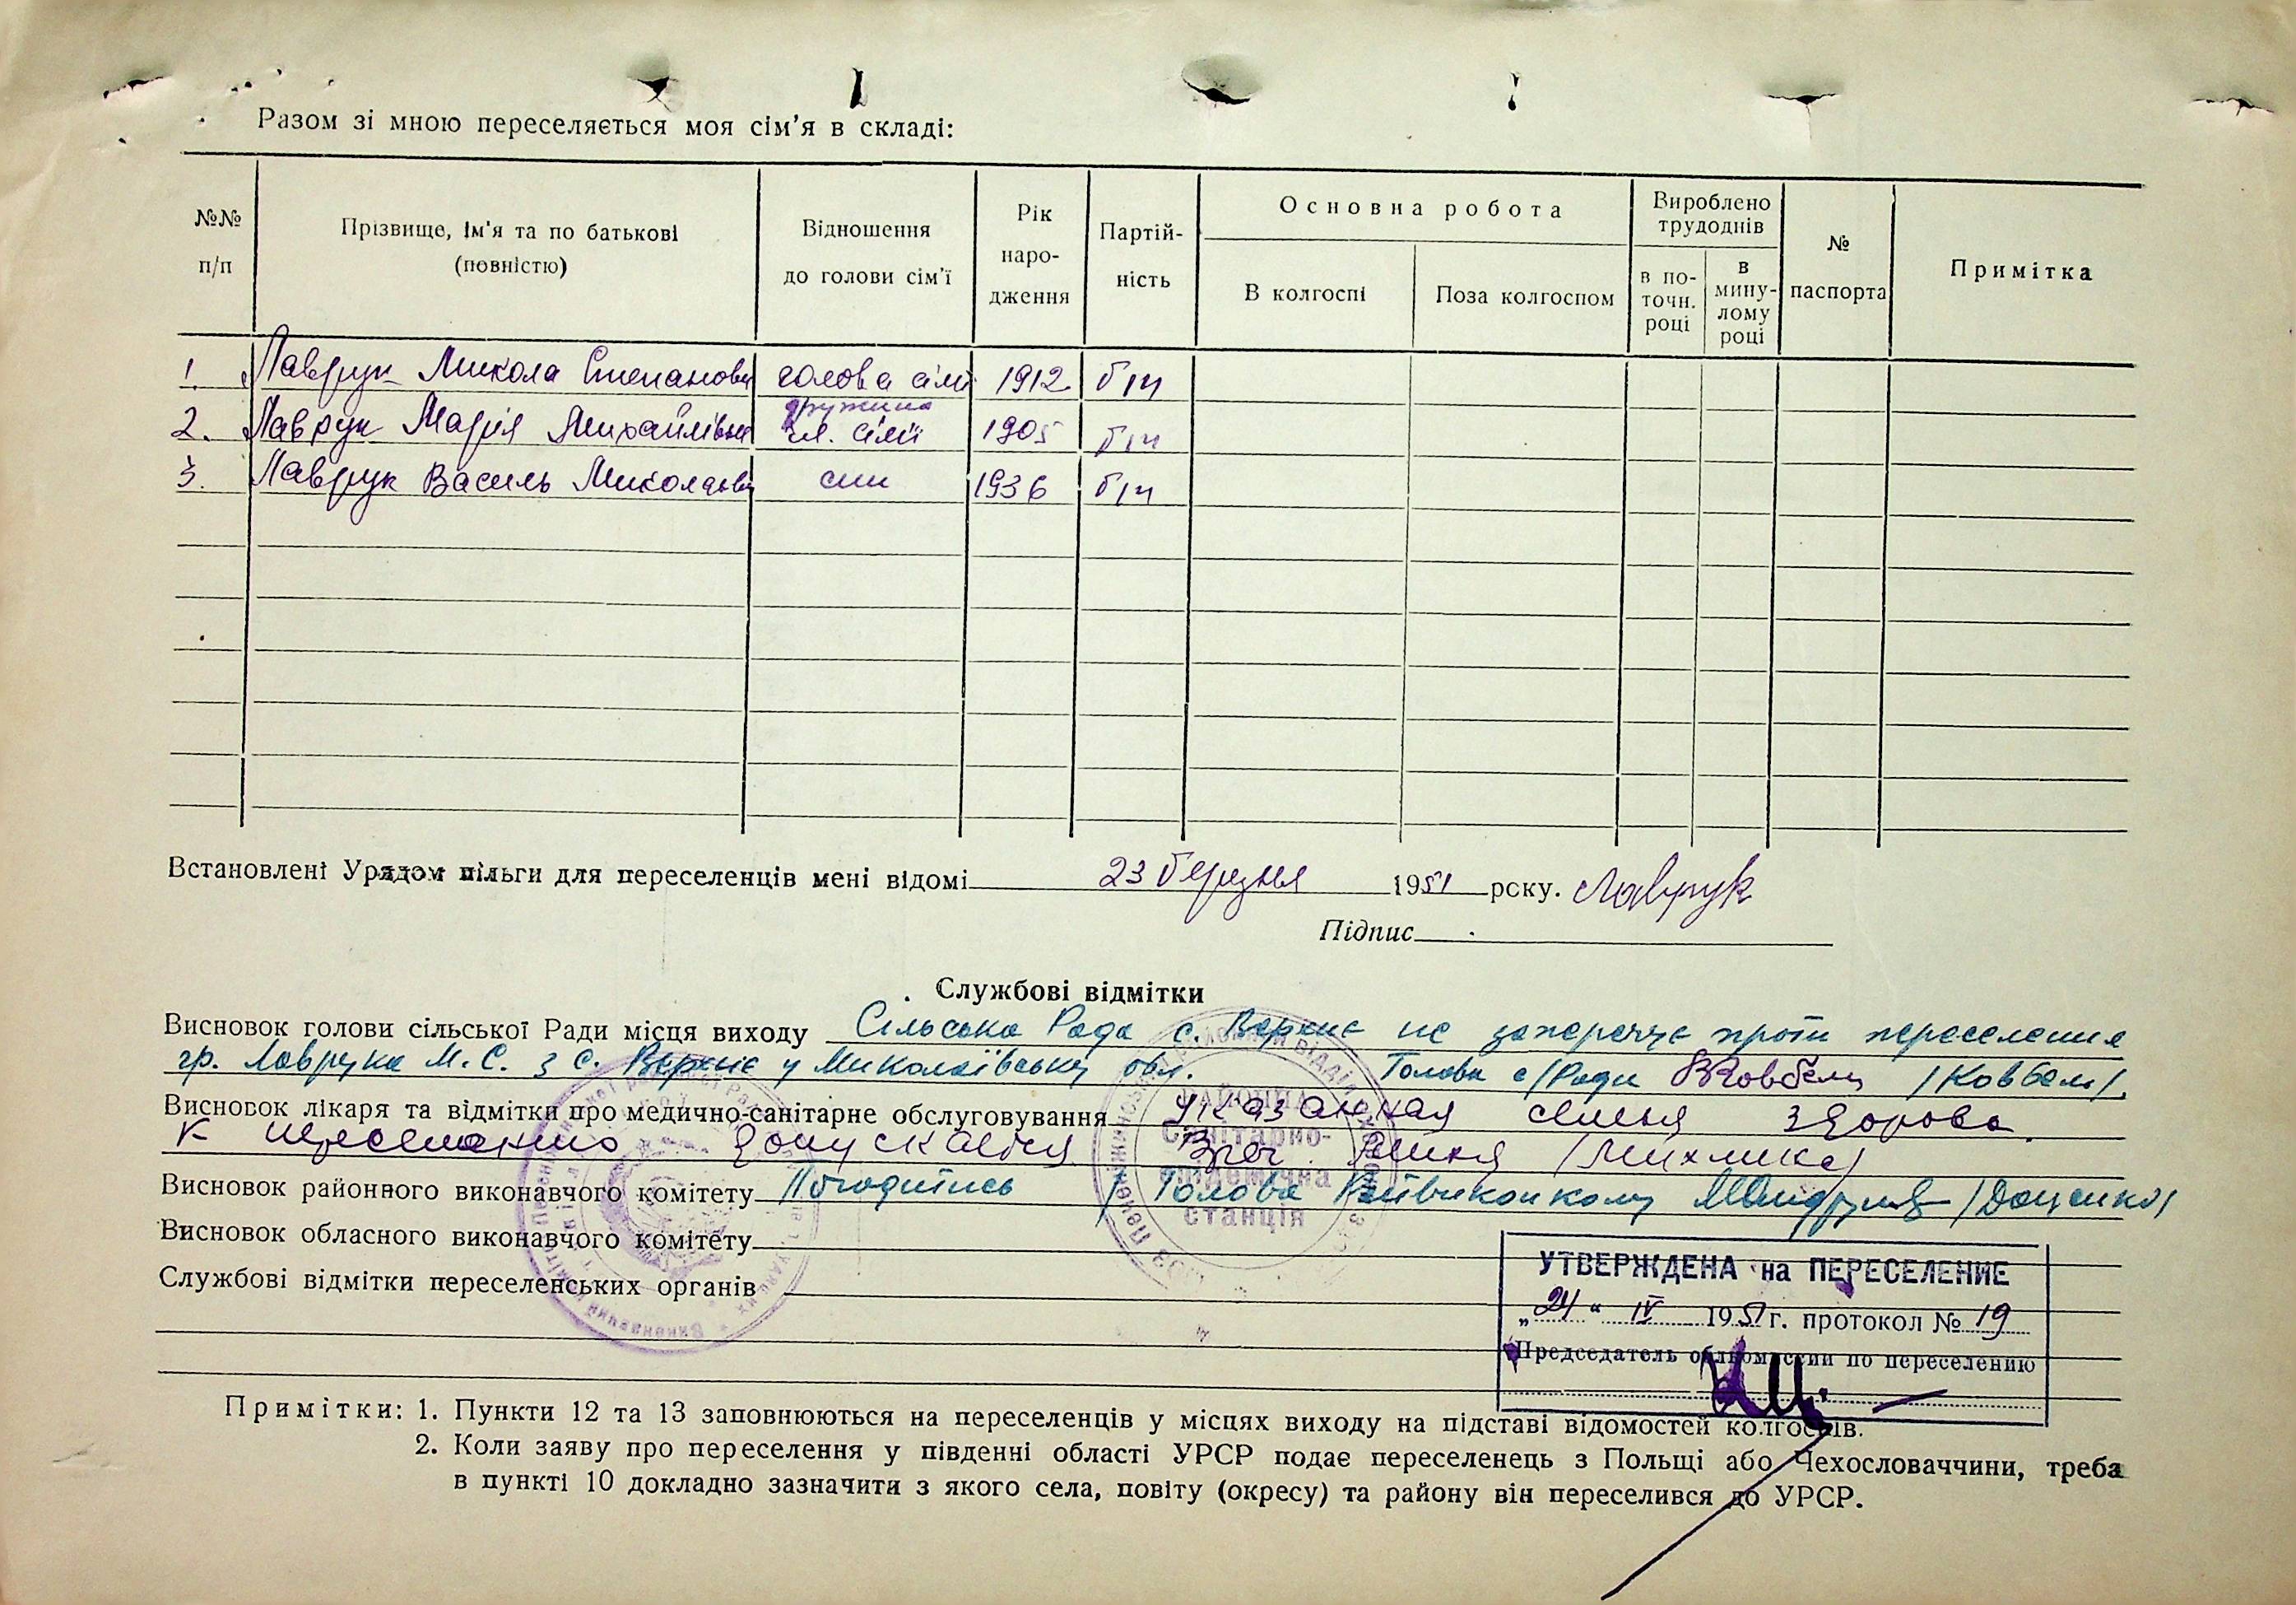 Разом зі мною переселяється моя сім'я в складі:
№№ п/п
Прізвище, ім'я та по батькові (повністю)
Відношення до голови сім'ї
Рік народження
Партійність
Основна робота
В колгоспі
Поза колгоспом
Вироблено трудоднів
в поточн. році
в минулому році
№ паспорта
Примітка
1. Лаврук Микола Степанович голова сім'ї 1912 б/п
2. Лаврук Марія Михайлівна дружина гл. сім'ї 1905 б/п
3. Лаврук Василь Миколаєвич син 1936 б/п
Встановлені Урядом пільги для переселенців мені відомі 23 березня 1951 року. Лаврук
Підпис
Службові відмітки
Висновок голови сільської Ради місця виходу Сільська Рада с. Верхнє не заперечує проти переселення
гр. Лаврука М.С. з с. Верхнє у Миколаївську обл. Голова с/Ради
Висновок лікаря та відмітки про медично-санітарне обслуговування Указанная семья здорова.
К переселению допускается Врач
Висновок районного виконавчого комітету Погодитись Голова Райвиконкому /Доценко/
Висновок обласного виконавчого комітету
Службові відмітки переселенських органів
районна
санітарно-
епідемічна
станція
УТВЕРЖДЕНА на ПЕРЕСЕЛЕНИЕ
„24“ IV 1951 г. протокол № 19
Председатель облкомиссии по переселению
Примітки: 1. Пункти 12 та 13 заповнюються на переселенців у місцях виходу на підставі відомостей колгоспів.
2. Коли заяву про переселення у південні області УРСР подає переселенець з Польщі або Чехословаччини, треба
в пункті 10 докладно зазначити з якого села, повіту (окресу) та району він переселився до УРСР.